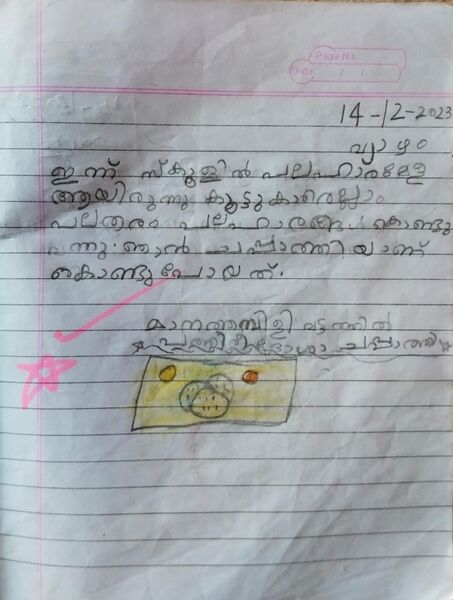 Page No.
Date: / /
14-12-2023
വ്യാഴം
ഇന്ന് സ്കൂളിൽ പലഹാരമേള
ആയിരുന്നു കൂട്ടുകാരെല്ലാം
പലതരം പലഹാരങ്ങൾ കൊണ്ടു
വന്നു. ഞാൻ ചപ്പാത്തിയാണ്
കൊണ്ടുപോയത്.
മാനത്തമ്പിളി വട്ടത്തിൽ
ചപ്പാത്തി